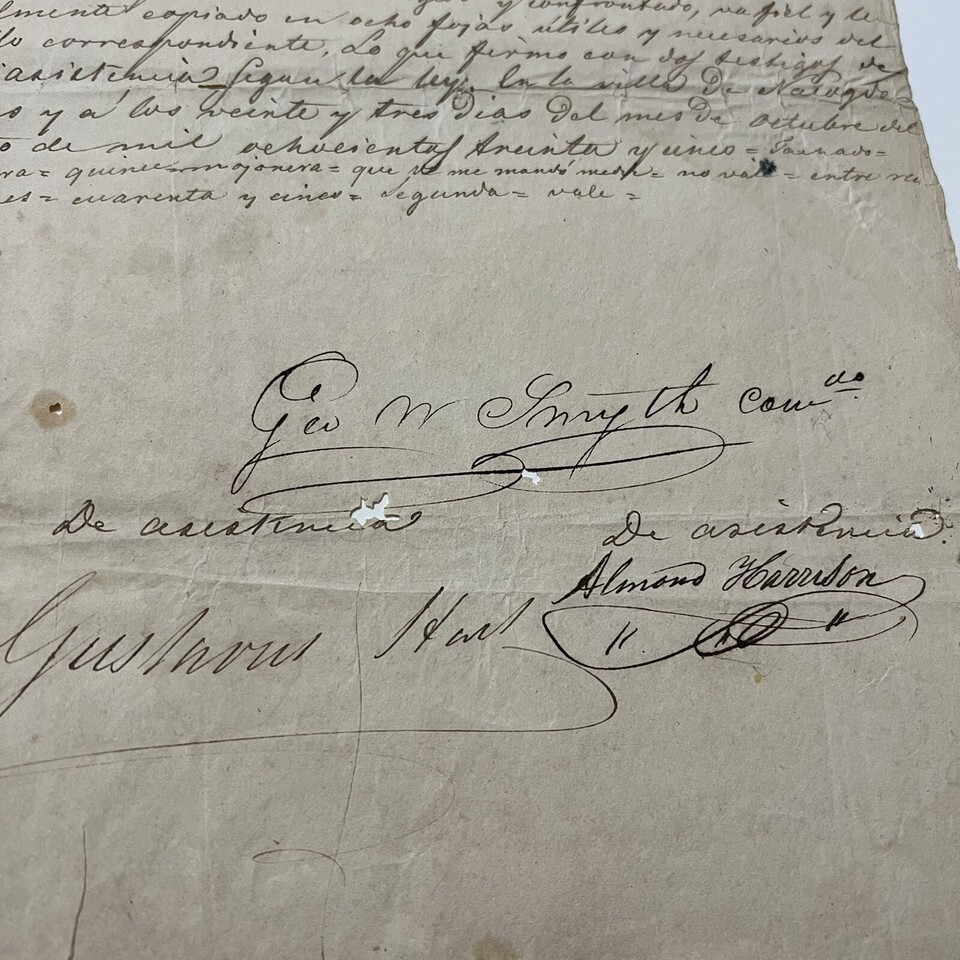 y confrontado, va fiel y le
lmente copiado en ocho fojas útiles y necesarios del
lo correspondiente. Lo que firmo con dos testigos de
asistencia segun la ley. En la villa de Nacogdo=
s y á los veinte y tres dias del mes de octubre del
o de mil ochocientos treinta y cinco = Tachado=
ra = quince = mojonera = que se me mandó medir = no vale = entre re
es = cuarenta y cinco = segunda = vale =
Geo W Smyth com.do
De asistencia De asistencia.
Almond Harrison
Gustavus Hart